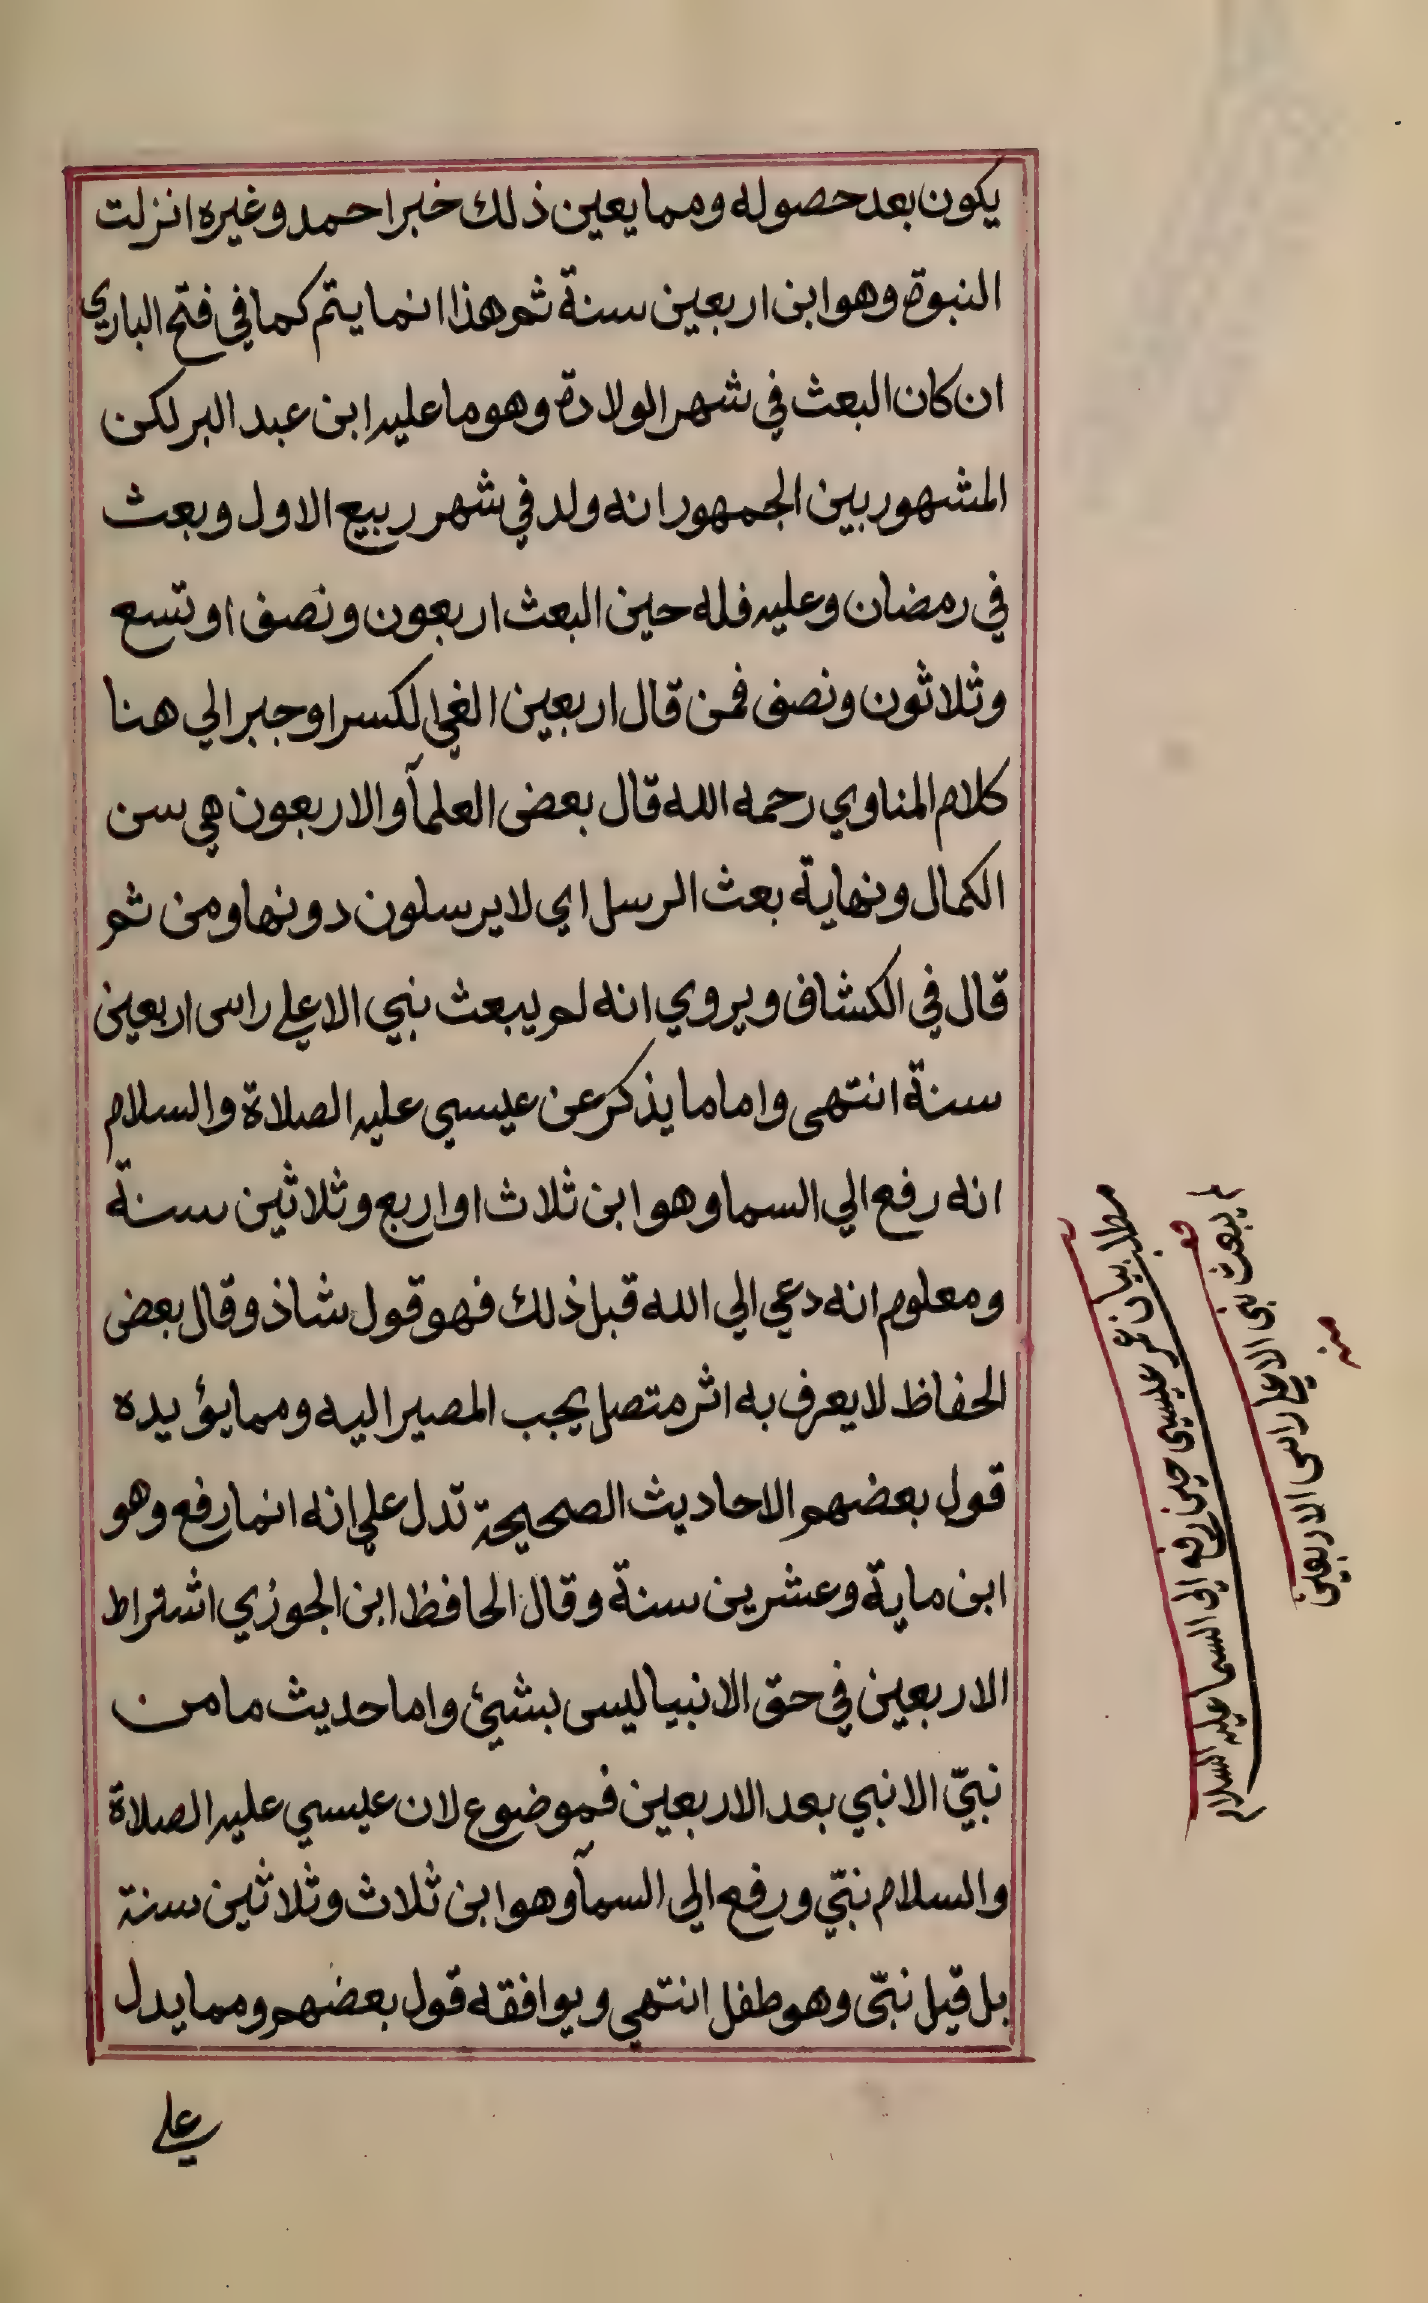 يكون بعد حصوله ومما يعين ذلك خبر احمد وغيره انزلت
النبوة وهو ابن اربعين سنة ثم هذا انما يتم كما في فتح الباري
ان كان البعث في شهر الولادة وهو ما عليه ابن عبد البر لكن
المشهور بين الجمهور انه ولد في شهر ربيع الاول وبعث
في رمضان وعليه فله حين البعث اربعون ونصف او تسع
وثلاثون ونصف فمن قال اربعين الغي الكسر او جبر الي هنا
كلام المناوي رحمه الله قال بعض العلمآ والاربعون هي سن
الكمال ونهاية بعث الرسل اي لا يرسلون دونها ومن ثم
قال في الكشاف ويروي انه لم يبعث نبي الا علي راس اربعين
سنة انتهى واما ما يذكر عن عيسي عليه الصلاة والسلام
انه رفع الي السما وهو ابن ثلاث او اربع وثلاثين سنة
ومعلوم انه دعي الي الله قبل ذلك فهو قول شاذ وقال بعض
الحفاظ لا يعرف به اثر متصل يجب المصير اليه ومما يؤيده
قول بعضهم الاحاديث الصحيحة تدل علي انه انما رفع وهو
ابن ماية وعشرين سنة وقال الحافظ ابن الجوزي اشتراط
الاربعين في حق الانبيا ليس بشئ واما حديث ما من
نبيّ الا نبي بعد الاربعين فموضوع لان عيسي عليه الصلاة
والسلام نبّي ورفع الى السمآ وهو ابن ثلاث وثلاثين سنة
بل قيل نبّى وهو طفل انتهي ويوافقه قول بعضهم ومما يدل
علي
مطلب بيان عمر عيسى حين رفعه الي السما عليه السلام
قف
لم يبعث نبى الا علي راس الاربعين
منه